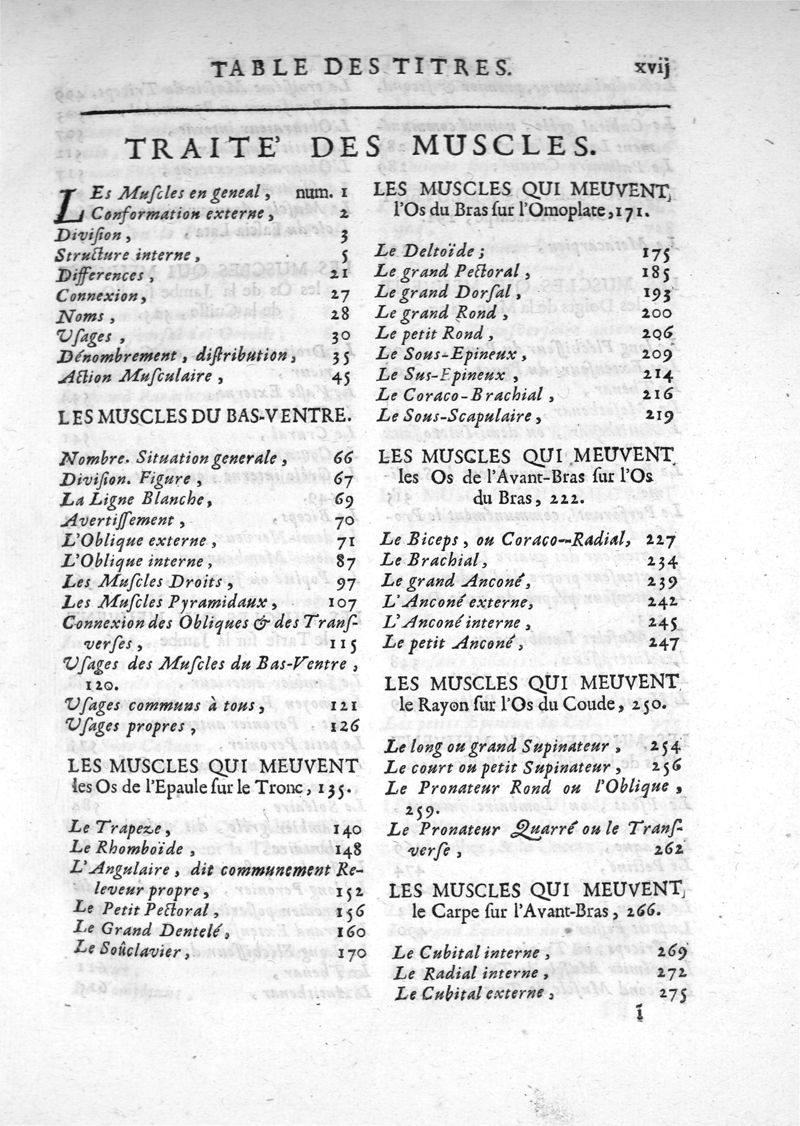 TABLE DES TITRES. xvij
TRAITE' DES MUSCLES.
LEs Muſcles en geneal, num. 1
Conformation externe, 2
Diviſion, 3
Structure interne, 5
Differences, 21
Connexion, 27
Noms, 28
Uſages, 30
Dénombrement, diſtribution, 35
Action Muſculaire, 45
LES MUSCLES DU BAS-VENTRE.
Nombre. Situation generale, 66
Diviſion. Figure, 67
La Ligne Blanche, 69
Avertiſſement, 70
L'Oblique externe, 71
L'Oblique interne, 87
Les Muſcles Droits, 97
Les Muſcles Pyramidaux, 107
Connexion des Obliques & des Tranſ-
verſes, 115
Vſages des Muſcles du Bas-Ventre,
120.
Vſages communs à tous, 121
Vſages propres, 126
LES MUSCLES QUI MEUVENT
les Os de l'Epaule ſur le Tronc, 135.
Le Trapeze, 140
Le Rhomboïde, 148
L'Angulaire, dit communement Re-
leveur propre, 152
Le Petit Pectoral, 156
Le Grand Dentelé, 160
Le Soûclavier, 170
LES MUSCLES QUI MEUVENT,
l'Os du Bras ſur l'Omoplate, 171.
Le Deltoïde; 175
Le grand Pectoral, 185
Le grand Dorſal, 193
Le grand Rond, 200
Le petit Rond, 206
Le Sous-Epineux, 209
Le Sus-Epineux, 214
Le Coraco-Brachial, 216
Le Sous-Scapulaire, 219
LES MUSCLES QUI MEUVENT
les Os de l'Avant-Bras ſur l'Os
du Bras, 222.
Le Biceps, ou Coraco--Radial, 227
Le Brachial, 234
Le grand Anconé, 239
L'Anconé externe, 242
L'Anconé interne, 245
Le petit Anconé, 247
LES MUSCLES QUI MEUVENT
le Rayon ſur l'Os du Coude, 250.
Le long ou grand Supinateur, 254
Le court ou petit Supinateur, 256
Le Pronateur Rond ou l'Oblique,
259.
Le Pronateur Quarré ou le Tranſ-
verſe, 262
LES MUSCLES QUI MEUVENT,
le Carpe ſur l'Avant-Bras, 266.
Le Cubital interne, 269
Le Radial interne, 272
Le Cubital externe, 275
ĩ